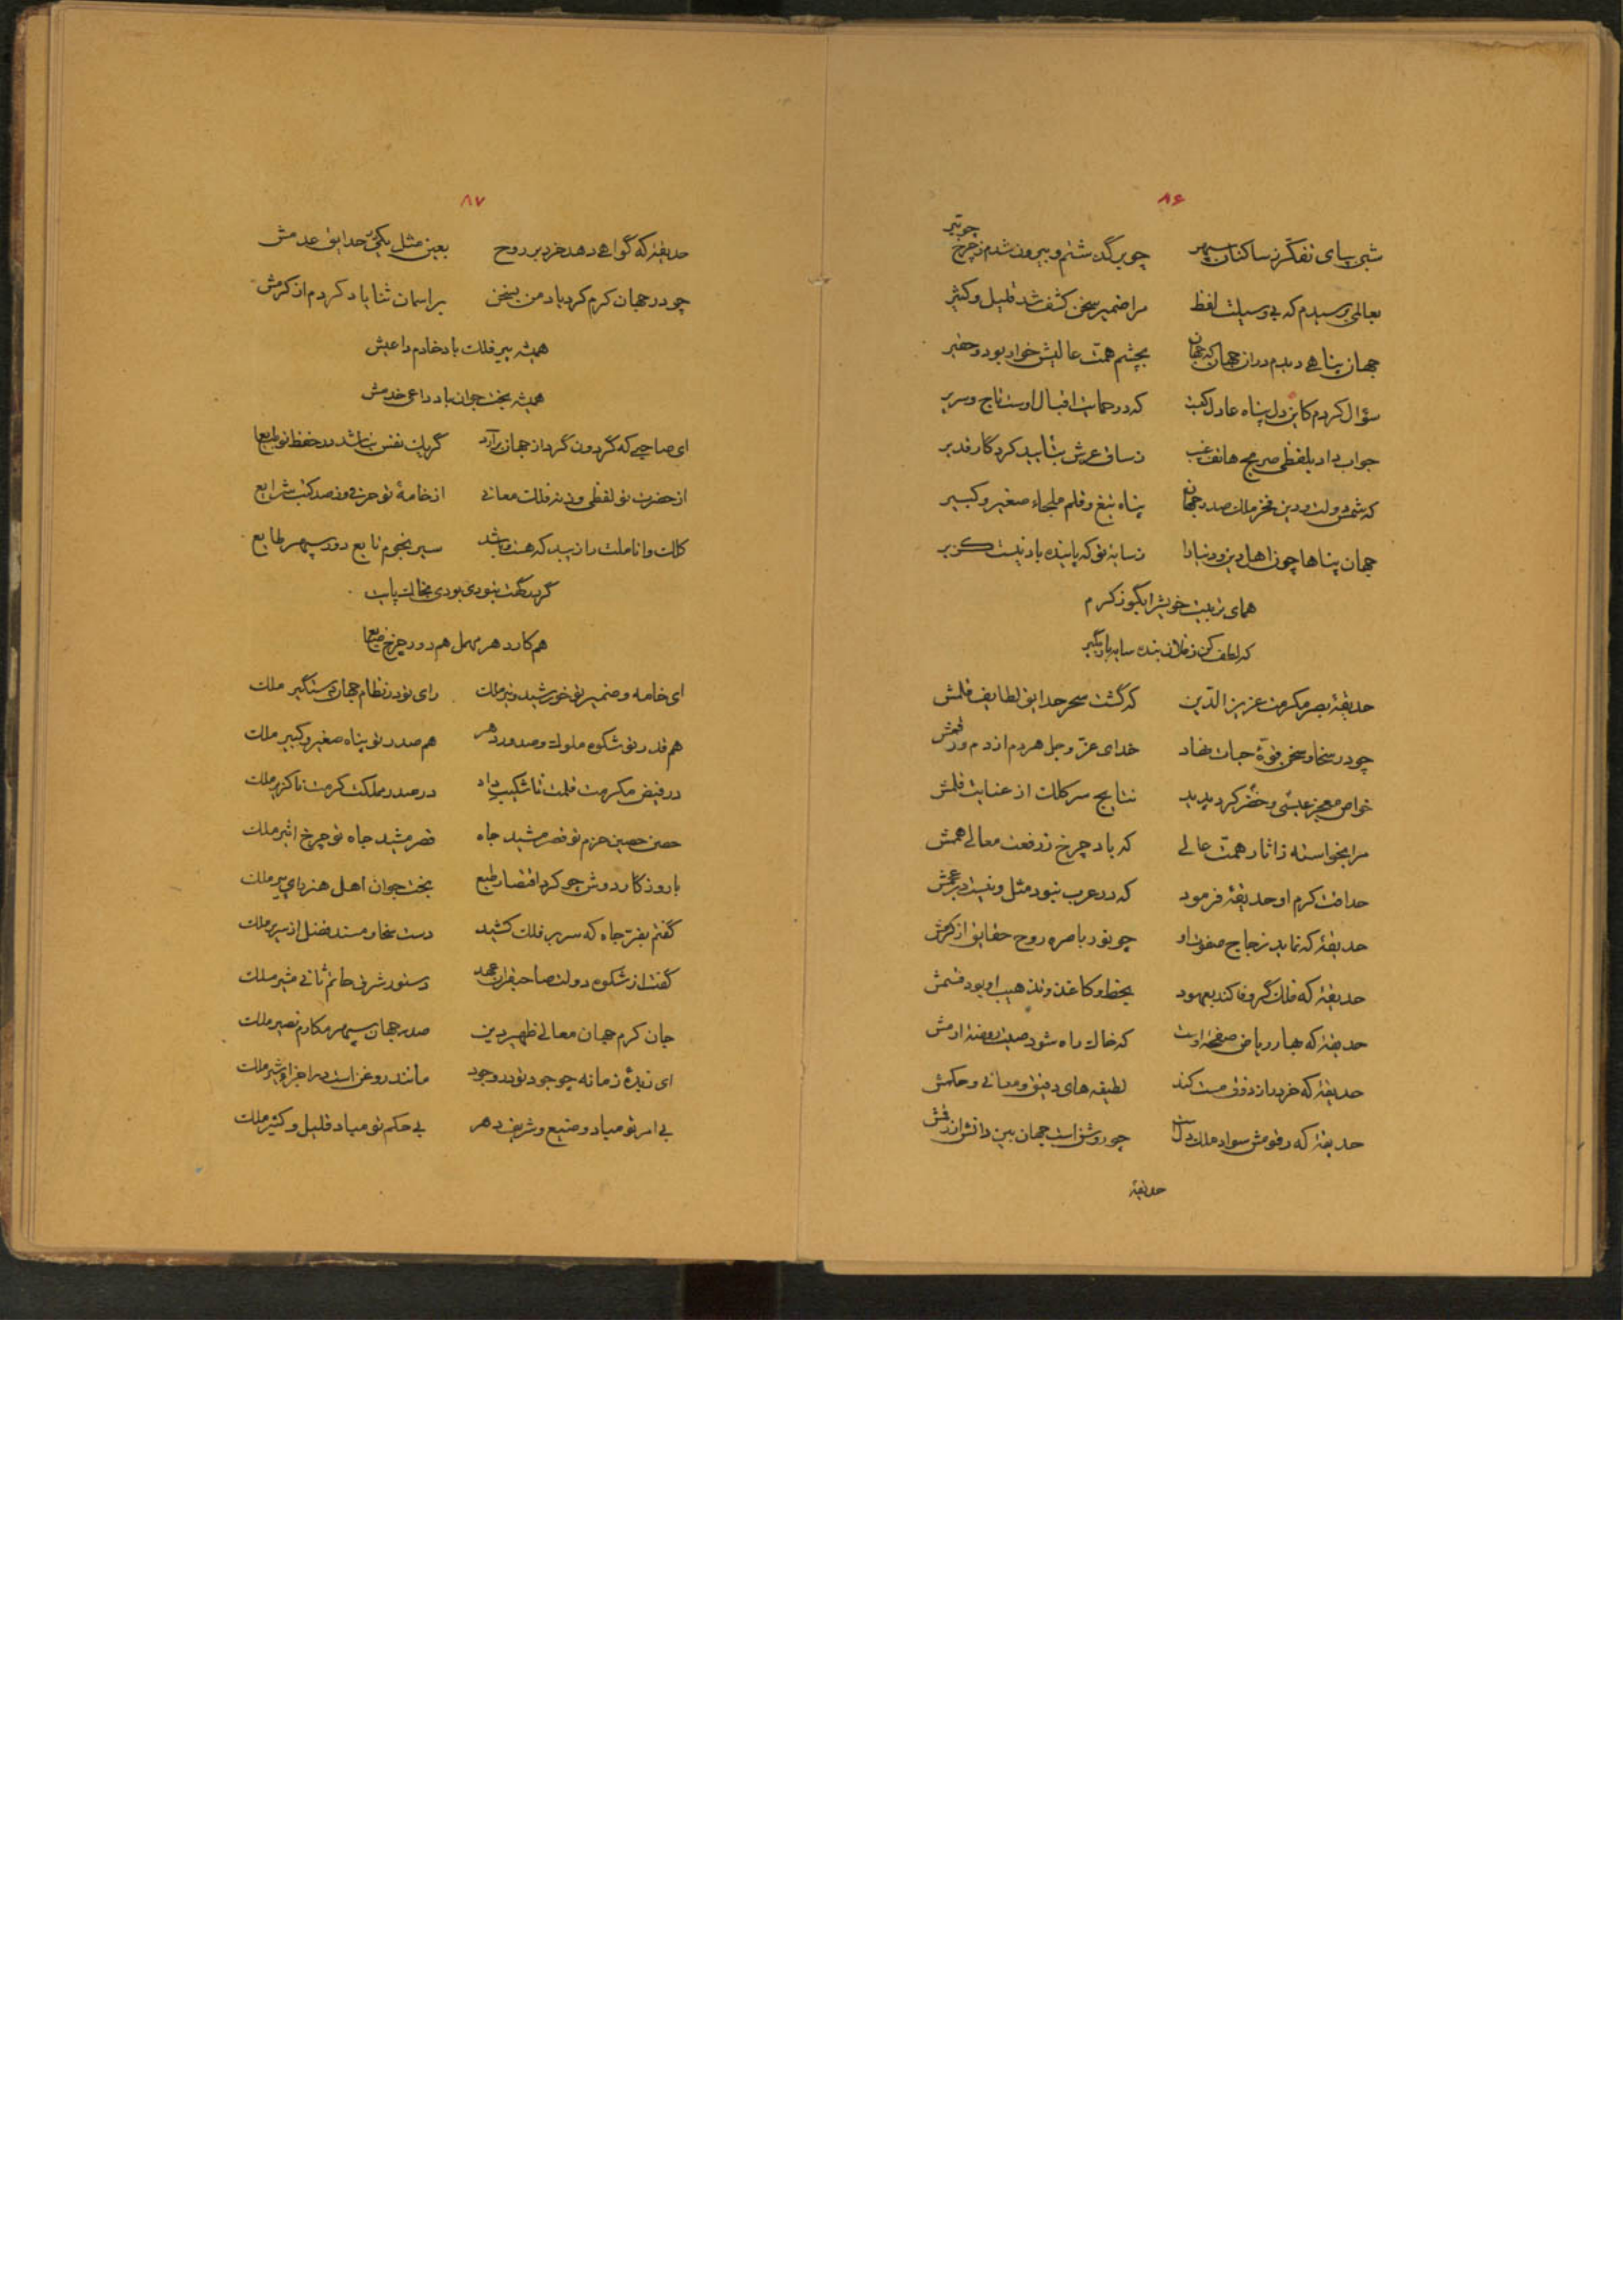 ۸۶
شبی بپای تفکر ز ساکنان سپهر چو برگذشتم و بیرون شدم ز چرخ چو تیر
بعالمی برسیدم که بی وسیلت لفظ مرا ضمیر سخن کشف شد قلیل و کثیر
جهان پناهی دیدم در آن جهان که جهان بچشم همت عالیش خوار بود و حقیر
سؤال کردم کاین دل پناه عادل کیست که در حمایت اقبال اوست تاج و سریر
جواب داد بلفظی صریح هاتف غیب ز ساق عرش بتایید کردگار قدیر
که شمس دولت و دین فخر ملک صدر جهان پناه تیغ و قلم ملجاء صغیر و کبیر
جهان پناها چون اهل دین و دنیا را ز سایه تو که پاینده باد نیست گزیر
همای تربیت خویش را بگو ز کرم
که لطف کن ز فلان بنده سایه باز مگیر
حدیقهٔ بصر مکرمت عزیز الدین که گشت سحر حدایق لطایف قلمش
چو در سخا و سخن قوّهٔ حیات نهاد خدای عزّ و جل هر دم از دم و
خواص معجز عیسی و خضر کرد پدید نتایج سر کلک از عنایت قلمش
مرا بخواسته ز اثار همت عالی که باد چرخ ز رفعت معالی هممش
حداقت کرم او حدیقهٔ فرمود که در عرب نبود مثل و نیست در عجمش
حدیقهٔ که نماید زجاج صفوت او چو نور باصره روح حقایق از
حدیقهٔ که فلک گر وفا کند بعهود بخط و کاغذ و تذهیب او بود قسمش
حدیقهٔ که بهار ریاض صفحهٔ اوست که خاک راه شود صیت روضهٔ ارمش
حدیقهٔ که خرد را ز ذوق مست کند لطیفه های دقیق و معانی و حکمش
حدیقهٔ که رقومش سواد ملک دل است چو روشن است جهان بین دانش از رقمش
حدیقهٔ
۸۷
حدیقهٔ که گواهی دهد خرد بر روح بعین مثل یکی در حدایق عدمش
چو در جهان کرم کرد یاد من بسخن بر اسمان ثنا یاد کردم از کرمش
همیشه پیر فلک باد خادم داعیش
همیشه بخت جوان باد داعی خدمش
ای صاحبی که گردون گرد از جهان برآرد گر یک نفس نباشد در حفظ تو طبایع
از حضرت تو لفظی وز نه فلک معانی از خامهٔ تو حرفی وز صد کتب شرایع
کلک و اناملت را زیبد که هست و باشد سیر نجوم تابع دور سپهر طایع
گر بی نبودی بودی پاست
هم کار دهر مهمل هم دور چرخ ضایع
ای خامه و ضمیر تو خورشید و تیر ملک رای تو در نظام جهان دستگیر ملک
هم قدر تو شکوه ملوک و صدور دهر هم صدر تو پناه صغیر و کبیر ملک
در فیض مکرمت قلمت ناشکیب داد در صدر مملکت کرمت ناگزیر ملک
حصن حصین حزم تو قصر مشید جاه قصر مشید جاه تو چرخ اثیر ملک
با روزگار دوش چو کرد اقتضا طبع بخت جوان اهل هنر رای پیر ملک
گفتم بفرّ جاه که سر بر فلک کشید دست سخا و مسند فضل از سریر ملک
گفت از شکوه دولت صاحبقران عهد دستور شرق حاتم ثانی مشیر ملک
جان کرم جهان معالی ظهیر دین صدر جهان سپهر مکارم نصیر ملک
ای زبدهٔ زمانه چو جود تو در وجود مانند روغن است در اجزای شیر ملک
بی امر تو مباد وضیع و شریف دهر بی حکم تو مباد قلیل و کثیر ملک